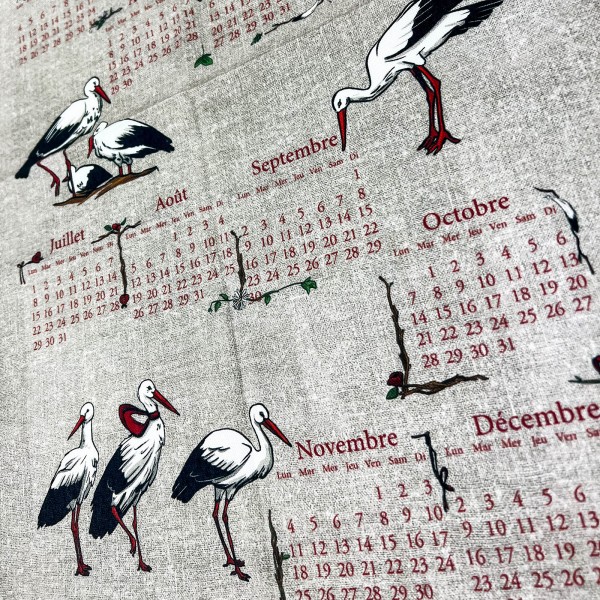 18 19 20 21 22 23 24
25 26 27 28 29 30 31
15 16 17 18 19 20 21
22 23 24 25 26 27 28
29 30
Juillet
Lun Mar Mer Jeu Ven Sam Di
1 2 3 4 5 6 7
8 9 10 11 12 13 14
15 16 17 18 19 20 21
22 23 24 25 26 27 28
29 30 31
Août
Lun Mar Mer Jeu Ven Sam Di
1 2 3 4
5 6 7 8 9 10 11
12 13 14 15 16 17 18
19 20 21 22 23 24 25
26 27 28 29 30 31
Septembre
Lun Mar Mer Jeu Ven Sam Di
1
2 3 4 5 6 7 8
9 10 11 12 13 14 15
16 17 18 19 20 21 22
23 24 25 26 27 28 29
30
Octobre
Lun Mar Mer Jeu Ven Sam Di
1 2 3 4 5 6
7 8 9 10 11 12 13
14 15 16 17 18 19 20
21 22 23 24 25 26 27
28 29 30 31
Novembre
Lun Mar Mer Jeu Ven Sam Di
1 2 3
4 5 6 7 8 9 10
11 12 13 14 15 16 17
18 19 20 21 22 23 24
Décembre
Lun Mar Mer Jeu Ven
2 3 4 5 6
9 10 11 12 13
16 17 18 19 20
23 24 25 26